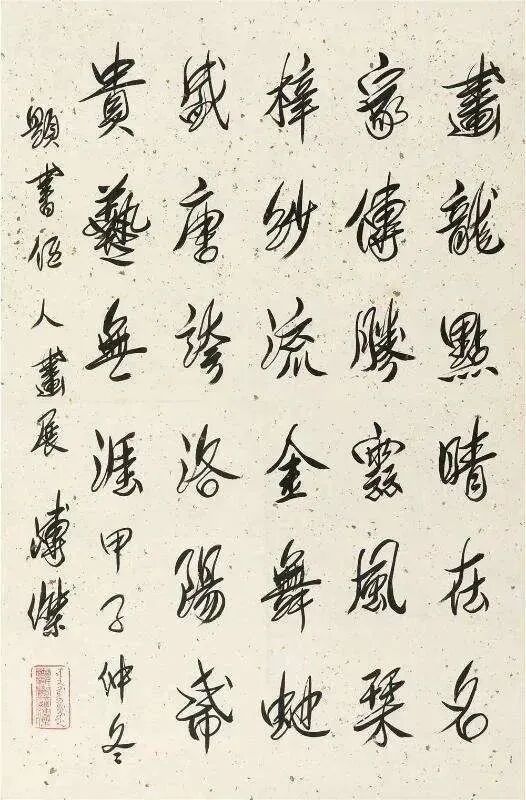 畫龍點睛在名
家傳勝風
梓紗流金舞虵
盛唐誇洛陽帋
貴藝無涯甲子仲冬
題書伍人畫展 溥傑